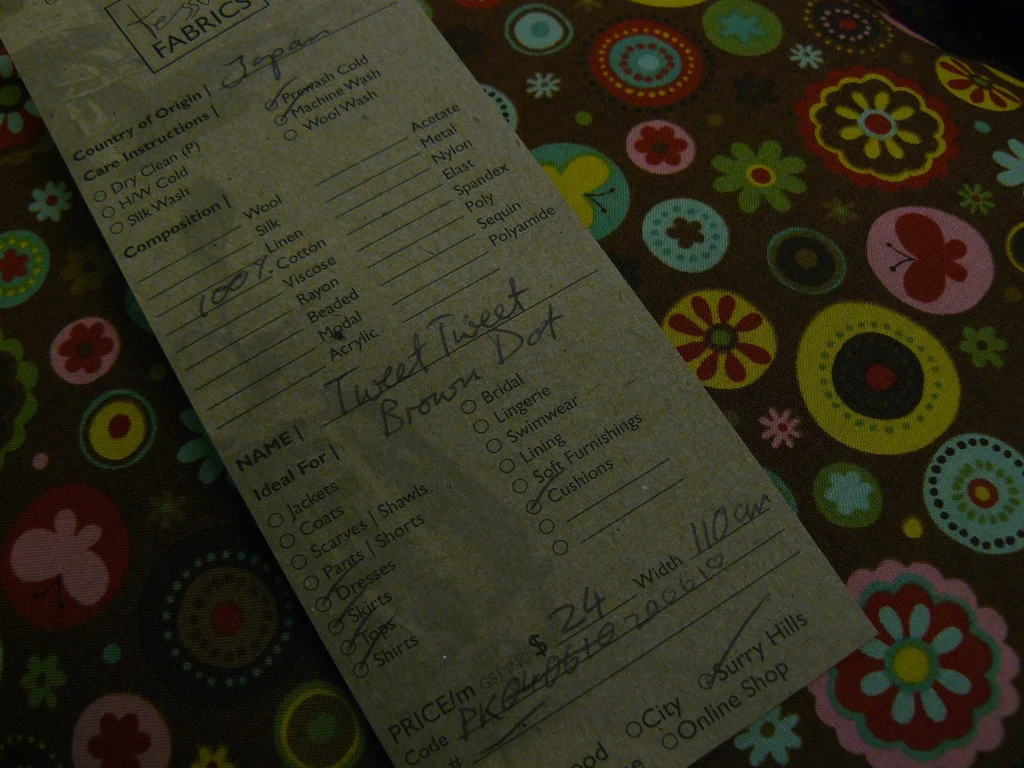 FABRICS
Country of Origin | Japan
Care Instructions |
Dry Clean (P)
H/W Cold
Silk Wash
Prewash Cold
Machine Wash
Wool Wash
Composition |
Wool
Silk
Linen
100% Cotton
Viscose
Rayon
Beaded
Modal
Acrylic
Acetate
Metal
Nylon
Elast
Spandex
Poly
Sequin
Polyamide
NAME | Tweet Tweet
Brown Dot
Ideal For |
Jackets
Coats
Scarves | Shawls
Pants | Shorts
Dresses
Skirts
Tops
Shirts
Bridal
Lingerie
Swimwear
Lining
Soft Furnishings
Cushions
PRICE/m GSTINC $ 24 Width 110cm
Code 200610
#
City
Surry Hills
Online Shop